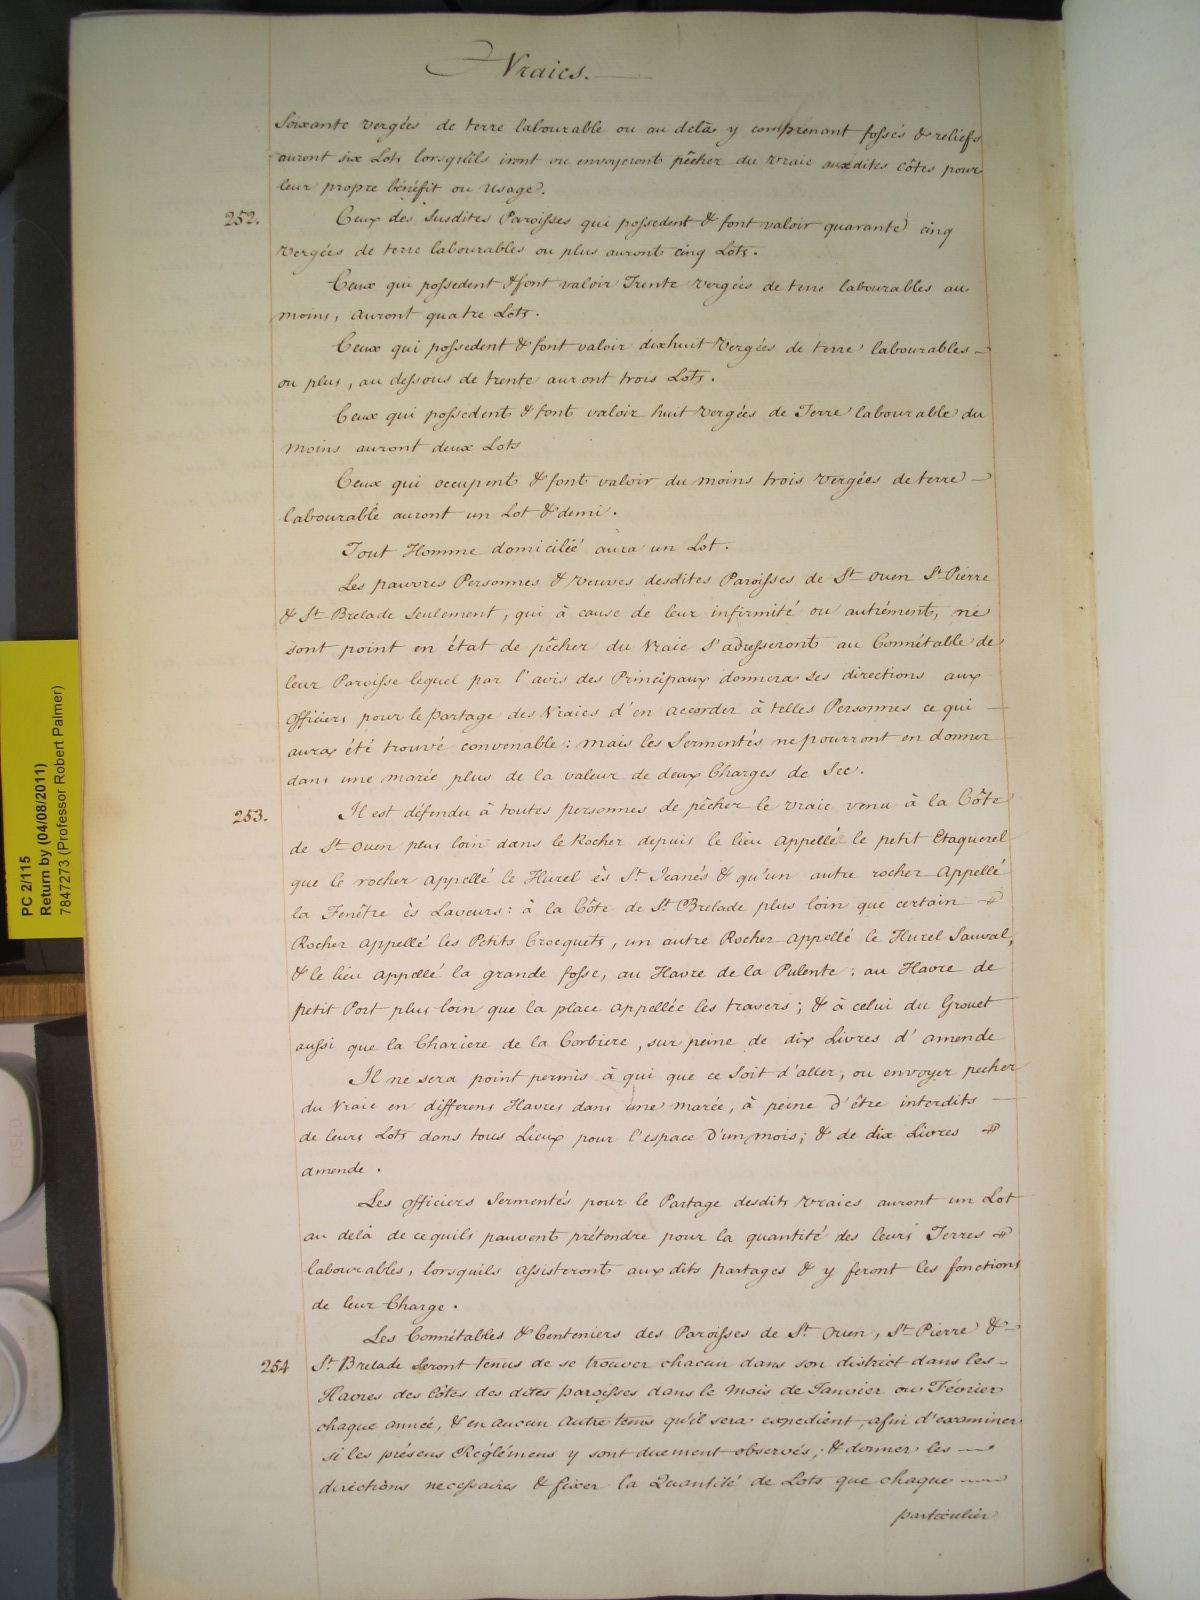 Vraics.
Soixante vergées de terre labourable ou au delà y comprenant fossés & reliefs
auront six Lots lorsqu'ils iront ou envoyeront pêcher du vraic auxdites Côtes pour
leur propre bénéfit ou Usage.
252. Ceux des Susdites Paroisses qui possedent & font valoir quarante cinq
Vergées de terre labourables ou plus auront cinq Lots.
Ceux qui possedent & font valoir Trente Vergées de terre labourables au
moins, Auront quatre Lots.
Ceux qui possedent & font valoir dixhuit Vergées de terre labourables
ou plus, au dessous de trente auront trois Lots.
Ceux qui possedent & font valoir huit Vergées de Terre labourable du
moins auront deux Lots
Ceux qui occupent & font valoir du moins trois Vergées de terre
labourable auront un Lot & demi.
Tout Homme domicilié aura un Lot.
Les pauvres Personnes & Veuves desdites Paroisses de St. Ouen St. Pierre
& St. Brelade Seulement, qui à cause de leur infirmité ou autrément, ne
sont point en état de pêcher du Vraic s'adresseront au Connétable de
leur Paroisse lequel par l'avis des Principaux donnera ses directions aux
Officiers pour le Partage des Vraics d'en accorder à telles Personnes ce qui
aura été trouvé convenable: mais les Sermentés ne pourront en donner
dans une marée plus de la valeur de deux Charges de Sec.
253. Il est défendu à toutes personnes de pêcher le vraic venu à la Côte
de St. Ouen plus loin dans le Rocher depuis le lieu Appellé le petit Etaquerel
que le rocher appellé le Hurel ès St. Jeanés & qu'un autre rocher Appellé
la Fenêtre ès Laveurs: à la Côte de St. Brelade plus loin que certain
Rocher Appellé les Petits Crocquets, un autre Rocher appellé le Hurel Sauval,
& le lieu appellé la grande fosse, au Havre de la Pulente: au Havre de
petit Port plus loin que la place appellée les travers; & à celui du Grouet
aussi que la Chariere de la Corbiere, sur peine de dix Livres d'amende
Il ne sera point permis à qui que ce Soit d'aller, ou envoyer pecher
du Vraic en differens Havres dans une marée, à peine d'être interdits
de leurs Lots dans tous Lieux pour l'espace d'un mois; & de dix Livres
amende.
Les Officiers Sermentés pour le Partage desdits Vraics auront un Lot
au delà de cequils pauvent prétendre pour la quantité des leurs Terres
labourables, lorsquils Assisteront aux dits partages & y feront les fonctions
de leur Charge.
Les Connétables & Centeniers des Paroisses de St. Ouen, St. Pierre &
254 St. Brelade Seront tenus de se trouver chacun dans son district dans les
Havres des Côtes des dites paroisses dans le Mois de Janvier ou Février
chaque année, & en aucun Autre tems qu'il sera expedient, afin d'examiner
si les présens Réglémens y sont duement observés, & donner les
directions necessaires & fixer la Quantité de Lots que chaque
particulier
PC 2/115
Return by (04/08/2011)
7847273 (Professor Robert Palmer)